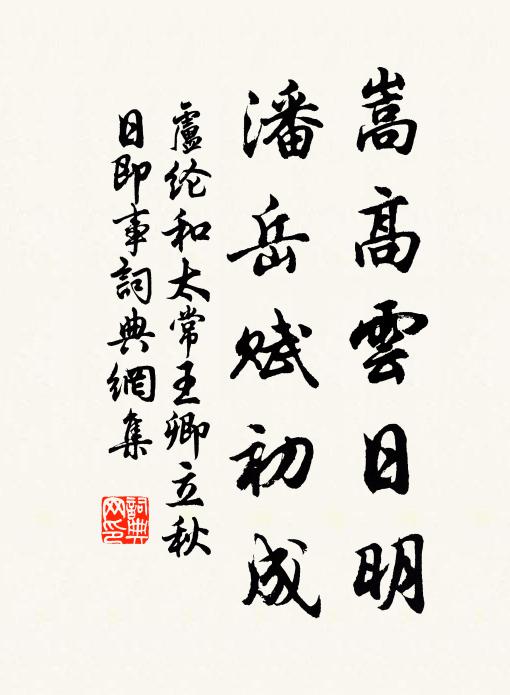 嵩高雲日明
潘岳賦初成
盧纶和太常王卿立秋
日即事詞典網集
詞典
网印